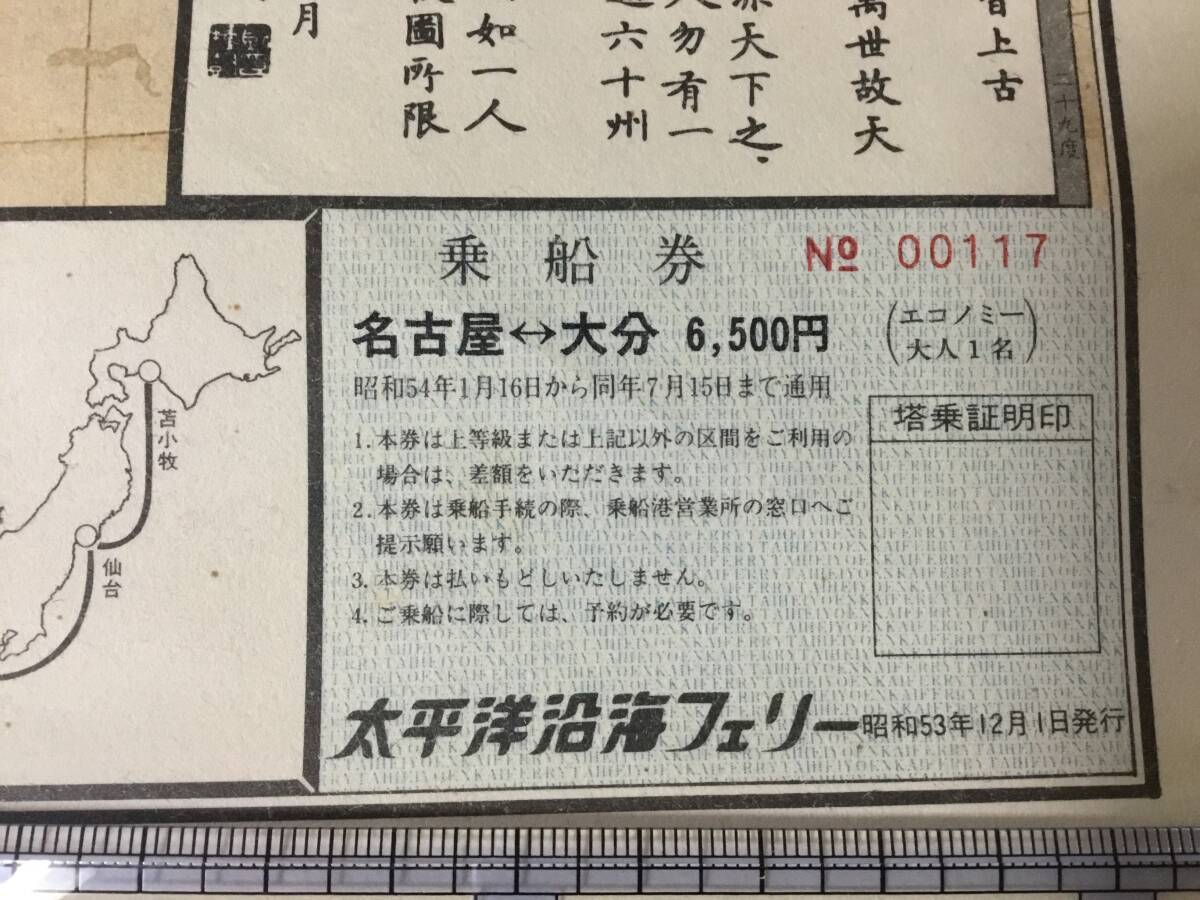 上古
萬世故天
天下之
勿有一
六十州
如一人
圖所限
月
二十九度
乗船券
№ 00117
名古屋↔大分 6,500円
(エコノミー
大人1名)
昭和54年1月16日から同年7月15日まで通用
塔乗証明印
1. 本券は上等級または上記以外の区間をご利用の
場合は、差額をいただきます。
2. 本券は乗船手続の際、乗船港営業所の窓口へご
提示願います。
3. 本券は払いもどしいたしません。
4. ご乗船に際しては、予約が必要です。
太平洋沿海フェリー
昭和53年12月1日発行
苫小牧
仙台